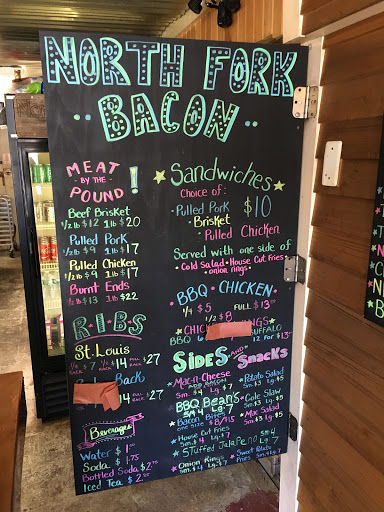 NORTH FORK
BACON
MEAT
BY THE
POUND!
Beef Brisket
½ lb $12 1 lb $20
Pulled Pork
½ lb $9 1 lb $17
Pulled Chicken
½ lb $9 1 lb $17
Burnt Ends
½ lb $13 1 lb $22
R.I.B.S
St. Louis
$7 $14 $27
Back
$7 $14 $27
Beverages
Water $1
Soda $1.75
Bottled Soda $2
Iced Tea $2
Sandwiches
Choice of: $10
Pulled Pork
Brisket
Pulled Chicken
Served with one side of
Cold Salad House Cut Fries
onion rings
BBQ CHICKEN
¼ $5 FULL $13
½ $8
BBQ 12 FOR $13
SIDES AND Snacks
Mac-n-Cheese
Sm. $4 Lg. $7
BBQ Beans
Sm $4 Lg. $7
Bacon Bites
one size $8
House Cut Fries
Sm $4 Lg. $7
Stuffed Jalapeno
Onion Rings
Sm. $4 Lg. $7
Potato Salad
Sm. $3 Lg. $5
Cole Slaw
Sm. $3 Lg. $5
Mac Salad
Sm. $3 Lg. $5
Sweet Potato
Fries